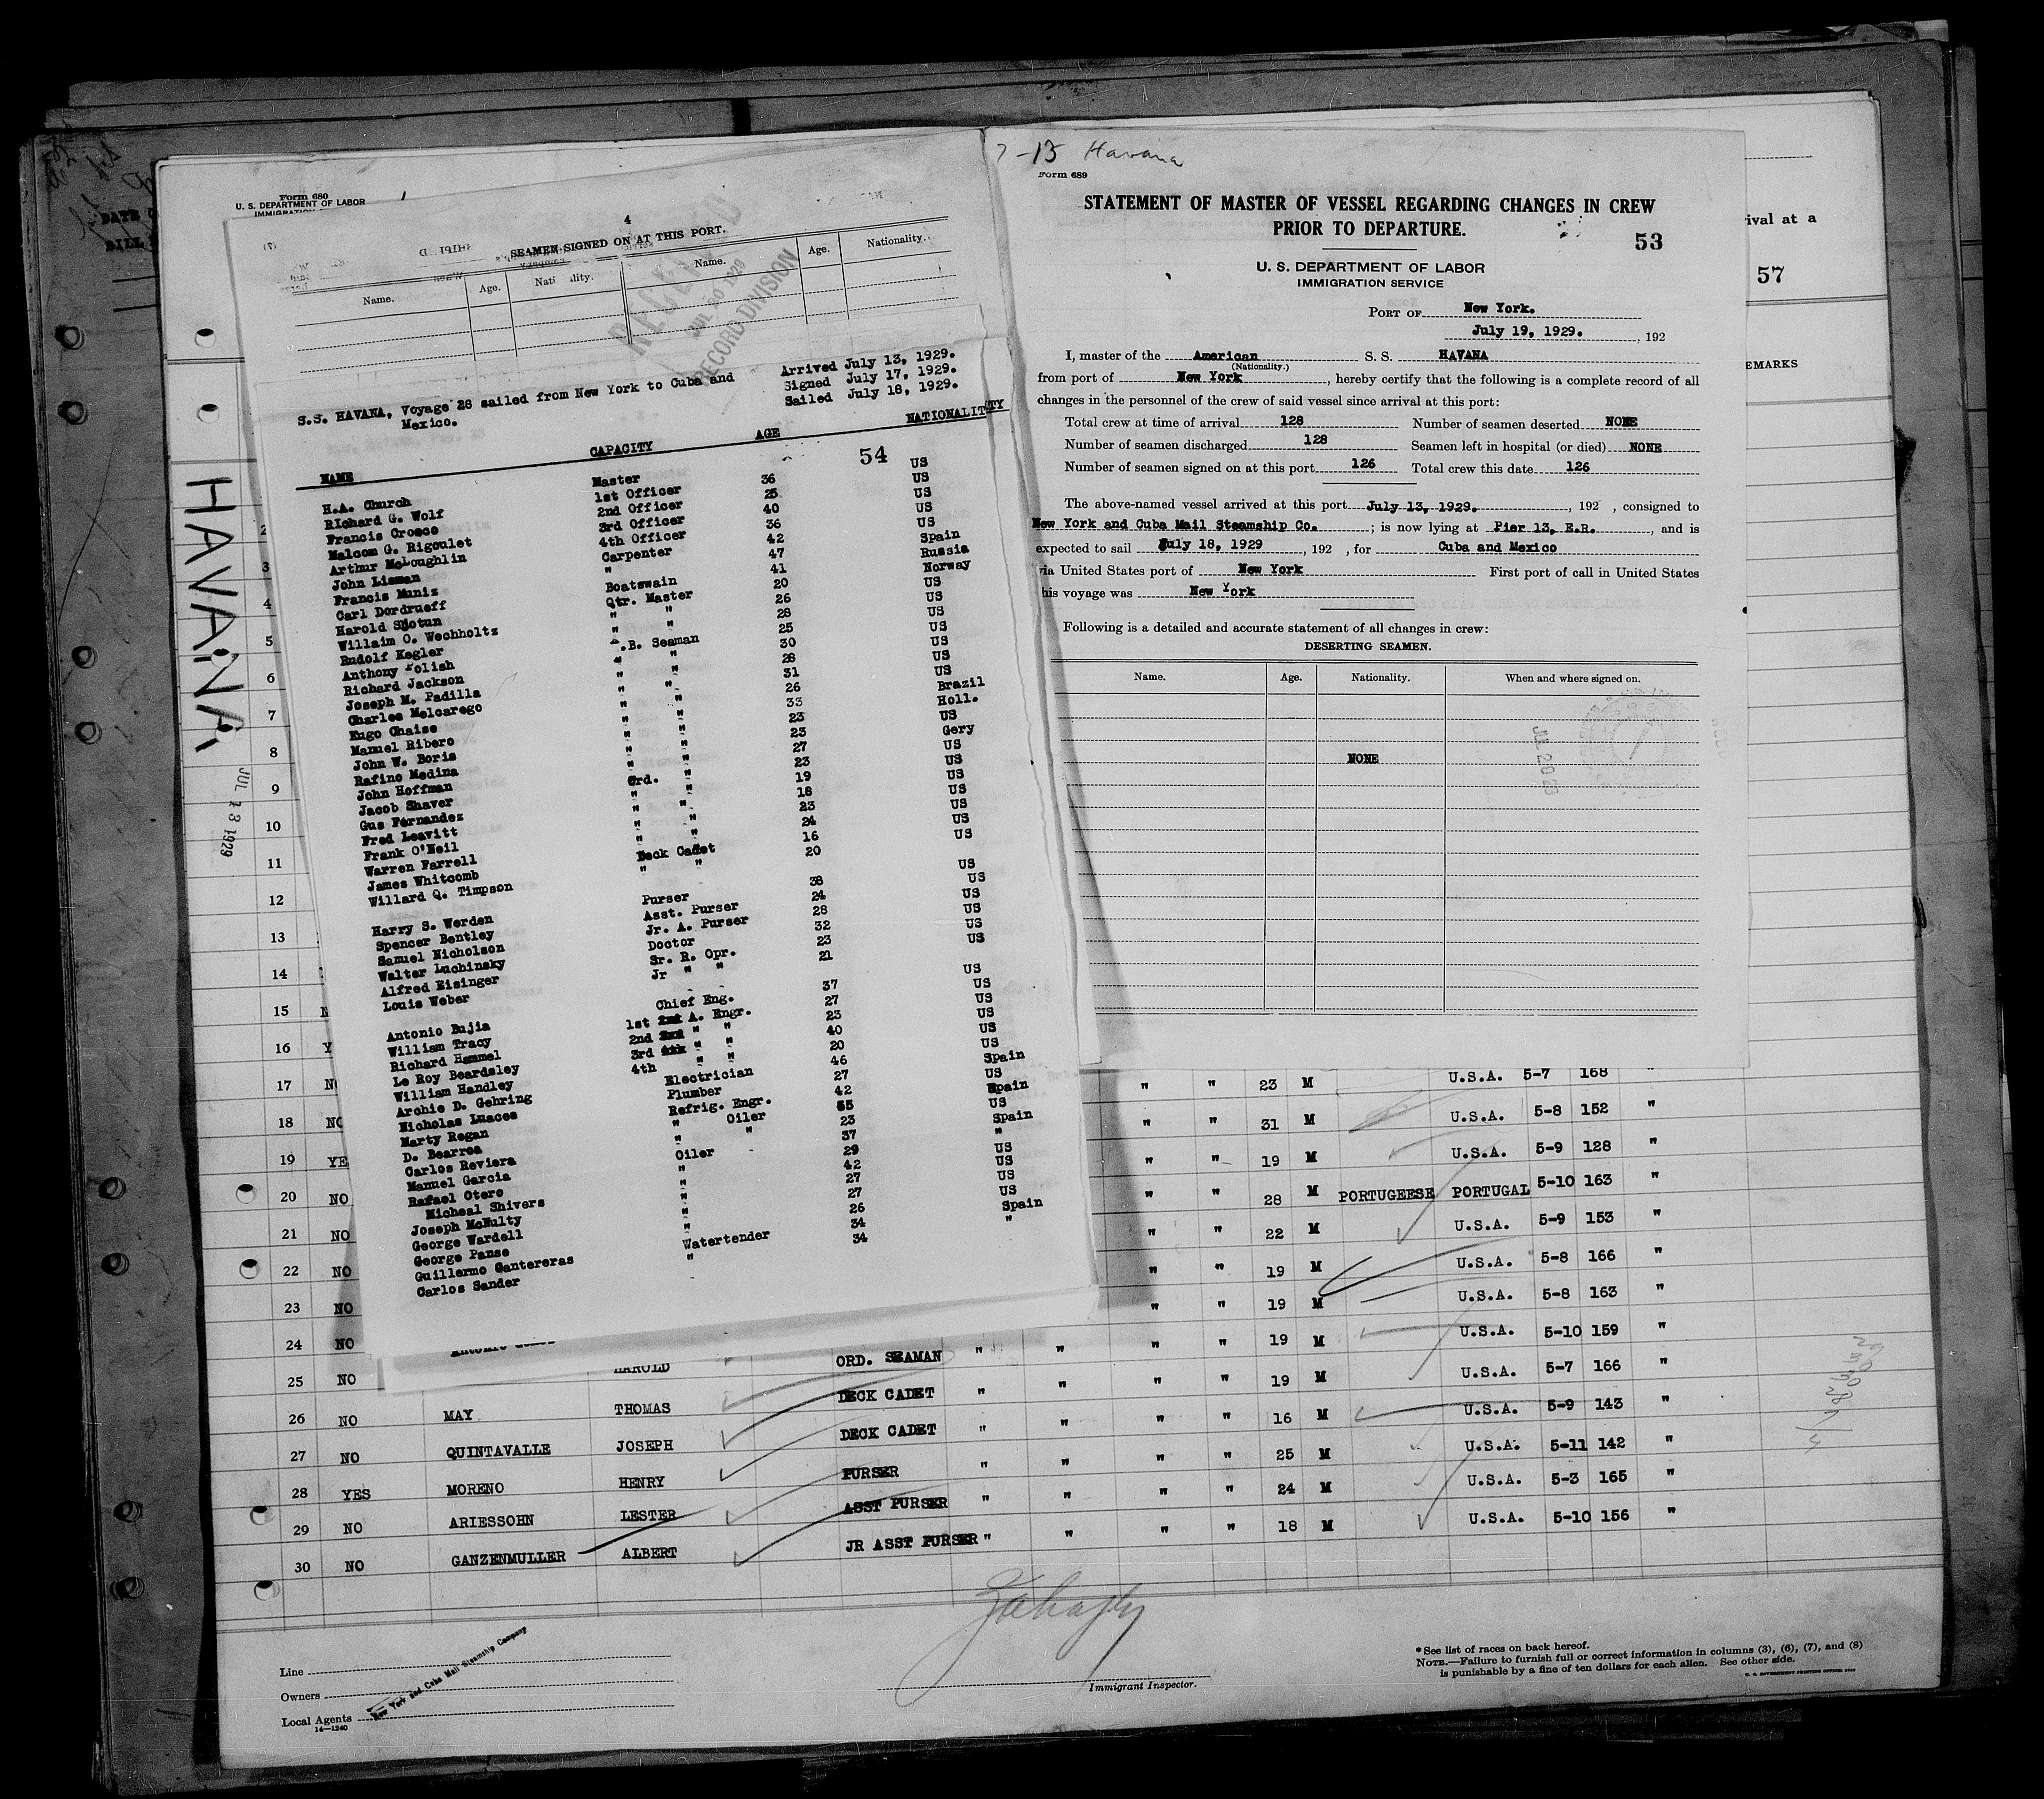 Form 680
U. S. DEPARTMENT OF LABOR
4
SEAMEN SIGNED ON AT THIS PORT.
Name. Age. Nationality. Name. Age. Nationality.
JUL 20 1929
RECORD DIVISION
S.S. HAVANA, Voyage 28 sailed from New York to Cuba and Mexico.
Arrived July 13, 1929.
Signed July 17, 1929.
Sailed July 18, 1929.
NAME CAPACITY AGE NATIONALITY
54
H.A. Church Master 36 US
Richard G. Wolf 1st Officer 25 US
Francis Crosco 2nd Officer 40 US
Malcom G. Rigoulet 3rd Officer 36 US
Arthur McLoughlin 4th Officer 42 US
John Lisman Carpenter 47 Spain
Francis Muniz " 41 Russia
Carl Dordrueff Boatswain 20 Norway
Harold Sjotun Qtr. Master 26 US
Willaim O. Wechholtz " " 28 US
Rudolf Kegler " " 25 US
Anthony Polish A.B. Seaman 30 US
Richard Jackson " " 28 US
Joseph M. Padilla " " 31 US
Charles Melcarego " " 26 US
Hugo Chaise " " 33 Brazil
Manuel Ribero " " 23 Holl.
John W. Boris " " 23 US
Rafino Medina " " 27 Gery
John Hoffman " " 23 US
Jacob Shaver Ord. " 19 US
Gus Fernandez " " 18 US
Fred Leavitt " " 23 US
Frank O'Neil " " 24 US
Warren Farrell " " 16 US
James Whitcomb Deck Cadet 20 US
Willard Q. Timpson " "
Harry S. Werden Purser 38 US
Spencer Bentley Asst. Purser 24 US
Samuel Nicholson Jr. A. Purser 28 US
Walter Luchinsky Doctor 32 US
Alfred Eisinger Sr. R. Opr. 23 US
Louis Weber Jr " " 21 US
Antonio Bujia Chief Eng. 37 US
William Tracy 1st A. Engr. 27 US
Richard Hammel 2nd " " 23 US
Le Roy Beardsley 3rd " " 40 US
William Handley 4th " " 20 US
Archie D. Gehring Electrician 46 US
Nicholas Luaces Plumber 27 Spain
Marty Regan Refrig. Engr. 42 US
D. Bearroa " Oiler 55 Spain
Carlos Reviera " " 23 US
Manuel Garcia Oiler 37 Spain
Rafael Otero " 29 "
Micheal Shivers " 42 US
Joseph McNulty " 27 US
George Wardell " 27 US
George Panse " 26 US
Guillermo Cantereras Watertender 34 Spain
Carlos Sander " 34 "
7-13 Havana
Form 689
STATEMENT OF MASTER OF VESSEL REGARDING CHANGES IN CREW
PRIOR TO DEPARTURE.
53
U. S. DEPARTMENT OF LABOR
IMMIGRATION SERVICE
PORT OF New York.
July 19, 1929. , 192
I, master of the American S. S. HAVANA
(Nationality.)
from port of New York, hereby certify that the following is a complete record of all
changes in the personnel of the crew of said vessel since arrival at this port:
Total crew at time of arrival 128 Number of seamen deserted NONE
Number of seamen discharged 128 Seamen left in hospital (or died) NONE
Number of seamen signed on at this port 126 Total crew this date 126
The above-named vessel arrived at this port July 13, 1929. , 192 , consigned to
New York and Cuba Mail Steamship Co. ; is now lying at Pier 13, E.R. , and is
expected to sail July 18, 1929 , 192 , for Cuba and Mexico
via United States port of New York First port of call in United States
his voyage was New York
Following is a detailed and accurate statement of all changes in crew:
DESERTING SEAMEN.
Name. Age. Nationality. When and where signed on.
NONE
ival at a
57
EMARKS
HAVANA
JUL 13 1929
2
3
4
5
6
7
8
9
10
11
12
13
14
15 N
16 Y
17 N " " 23 M U.S.A. 5-7 168 "
18 NO " " 31 M U.S.A. 5-8 152 "
19 YE " " 19 M U.S.A. 5-9 128 "
20 NO " " 28 M PORTUGEESE PORTUGAL 5-10 163 "
21 NO " " 22 M U.S.A. 5-9 153 "
22 NO " " 19 M U.S.A. 5-8 166 "
23 NO " " 19 M U.S.A. 5-8 163 "
24 NO " " 19 M U.S.A. 5-10 159 "
25 NO HAROLD ORD. SEAMAN " " " " 19 M U.S.A. 5-7 166 "
26 NO MAY THOMAS DECK CADET " " " " 16 M U.S.A. 5-9 143 "
27 NO QUINTAVALLE JOSEPH DECK CADET " " " " 25 M U.S.A. 5-11 142 "
28 YES MORENO HENRY PURSER " " " " 24 M U.S.A. 5-3 165 "
29 NO ARIESSOHN LESTER ASST PURSER " " " " 18 M U.S.A. 5-10 156 "
30 NO GANZENMULLER ALBERT JR ASST PURSER "
Line
Owners
Local Agents
New York and Cuba Mail Steamship Company
14—1240
Immigrant Inspector.
* See list of races on back hereof.
NOTE.—Failure to furnish full or correct information in columns (3), (6), (7), and (8)
is punishable by a fine of ten dollars for each alien. See other side.